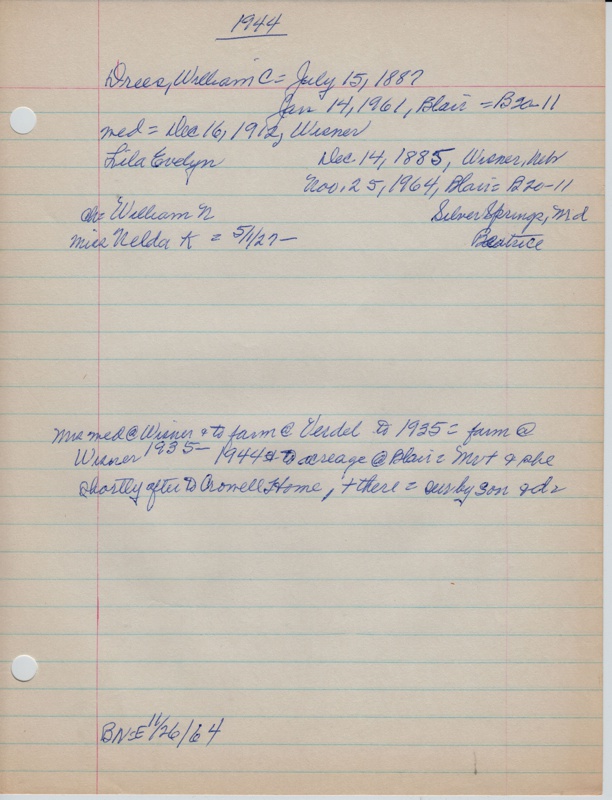 1944
Drees, William C = July 15, 1887
Jan 14, 1961, Blair = B20-11
med = Dec 16, 1912, Wisner
Lila Evelyn Dec. 14, 1885, Wisner, Neb
Nov. 25, 1964, Blair = B20-11
ch = William N Silver Springs, Md
Miss Nelda K = 5/1/27 - Beatrice
Mrs med @ Wisner & to farm @ Verdel to 1935 = farm @
Wisner 1935 - 1944 & to acreage @ Blair = Mr + & she
shortly after to Crowell Home, + there = sur by son & d
BN-E 11/26/64